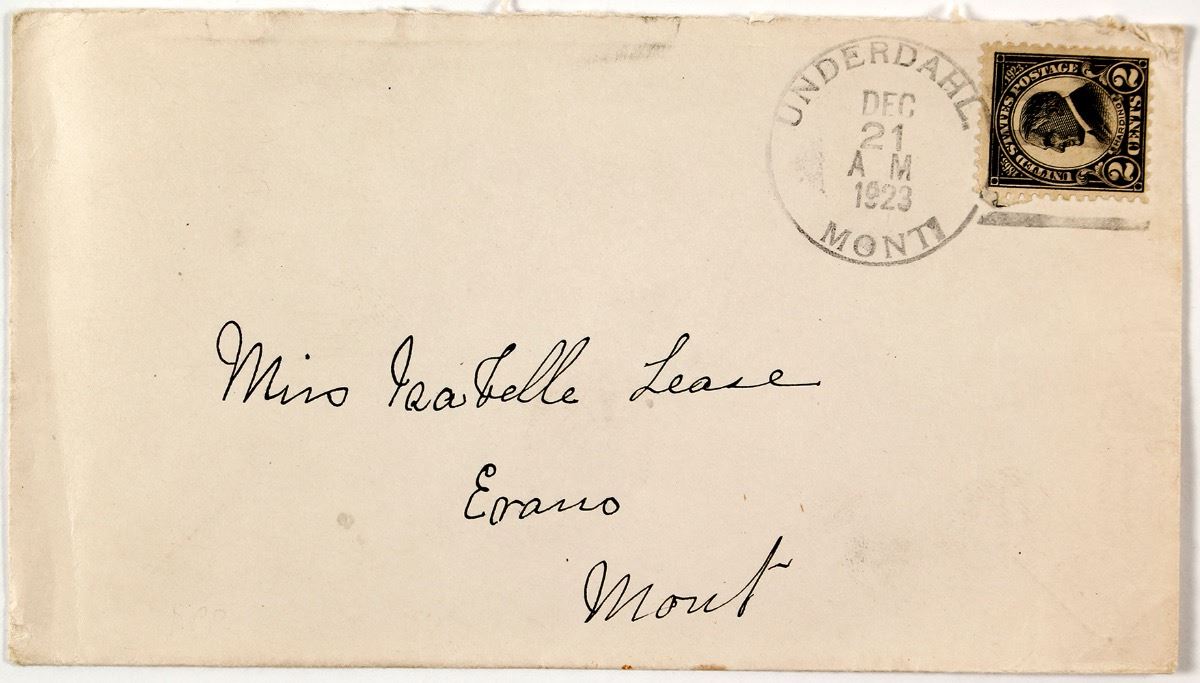 UNDERDAHL.
DEC
21
A M
1923
MONT.
1865 UNITED STATES POSTAGE 1923
HARDING
2 CENTS 2
Miss Isabelle Lease
Evans
Mont